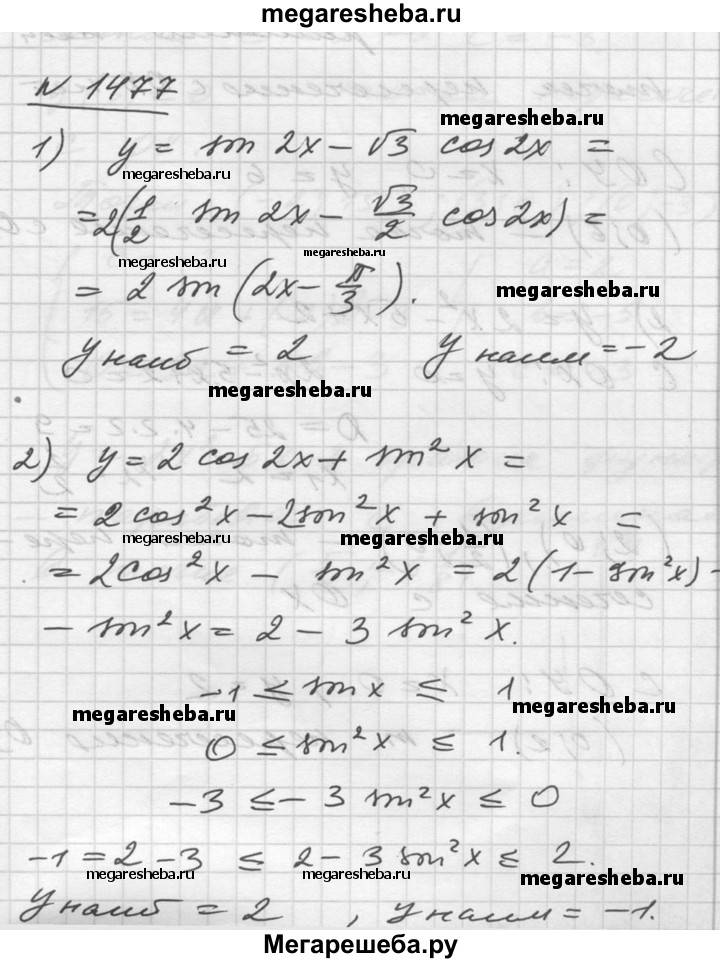 megaresheba.ru
N 1477
megaresheba.ru
1) y = sin 2x - √3 cos 2x =
megaresheba.ru
= 2(1/2 sin 2x - √3/2 cos 2x) =
megaresheba.ru megaresheba.ru
= 2 sin (2x - π/3).
megaresheba.ru
y наиб = 2 y наим = -2
megaresheba.ru
2) y = 2 cos 2x + sin² x =
= 2 cos² x - 2 sin² x + sin² x =
megaresheba.ru megaresheba.ru
= 2 cos² x - sin² x = 2 (1 - sin² x) -
- sin² x = 2 - 3 sin² x.
-1 ≤ sin x ≤ 1
megaresheba.ru megaresheba.ru
0 ≤ sin² x ≤ 1.
-3 ≤ -3 sin² x ≤ 0
-1 = 2 - 3 ≤ 2 - 3 sin² x ≤ 2.
megaresheba.ru megaresheba.ru megaresheba.ru
y наиб = 2 , y наим = -1.
Мегарешеба.ру